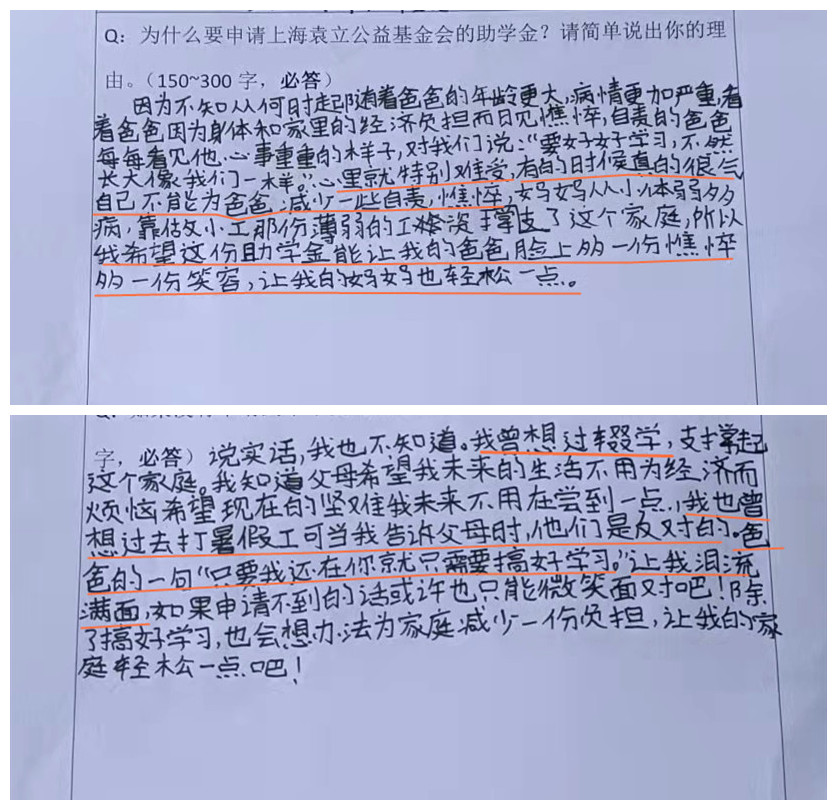 Q：为什么要申请上海袁立公益基金会的助学金？请简单说出你的理
由。（150~300 字，必答）
因为不知从何时起那随着爸爸的年龄更大，病情更加严重，看
着爸爸因为身体和家里的经济负担而日见憔悴，自责的爸爸
每每看见他心事重重的样子，对我们说："要好好学习，不然
长大像我们一样。"心里就特别难受，有的时候真的很气
自己不能为爸爸减少一些自责，憔悴，妈妈从小体弱多
病，靠做小工那份薄弱的工资撑支了这个家庭，所以
我希望这份助学金能让我的爸爸脸上多一份憔悴
多一份笑容，让我的妈妈也轻松一点。
字，必答）说实话，我也不知道。我曾想过辍学，支撑起
这个家庭。我知道父母希望我未来的生活不用为经济而
烦恼希望现在的坚难我未来不用在尝到一点.，我也曾
想过去打暑假工可当我告诉父母时，他们是反对的。爸
爸的一句"只要我还在你就只需要搞好学习。"让我泪流
满面，如果申请不到的话或许也只能微笑面对吧！除
了搞好学习，也会想办法为家庭减少一份负担，让我的家
庭轻松一点吧！